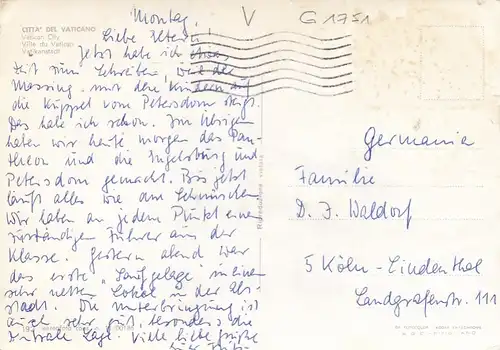 CITTA' DEL VATICANO
Vatican City
Ville du Vatican
Vatikanstadt
Montag,
Liebe Eltern!
Jetzt habe ich etwas
Zeit zum Schreiben, weil der
Messing mit den Kindern auf
die Kuppel vom Petersdom steigt.
Das habe ich schon. Im Übrigen
haben wir heute morgen das Pan-
theon und die Engelsburg und
Petersdom gemacht. Bis jetzt
läuft alles wie am Schnürchen.
Wir haben an jedem Punkt einen
zuständigen Führer aus der
Klasse. Gestern abend war
das erste "Saufgelage" in einem
sehr netten Lokal in der Alt-
stadt. Die Unterbringung ist
auch sehr gut, besonders die
zentrale Lage. Viele liebe Grüße
V
G 1751
Germania
Familie
D. J. Waldorf
5 Köln-Lindenthal
Landgrafenstr. 111